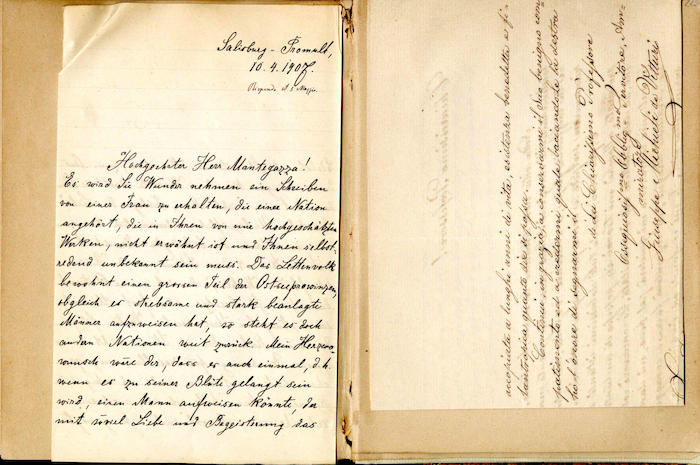 Salisburg - Promuld,
10.4.1907.
Risposto il 5 Maggio
Hochgeehrter Herr Mantegazza!
Es wird Sie Wunder nehmen ein Schreiben
von einer Frau zu erhalten, die einer Nation
angehört, die in Ihren von mir hochgeschätzten
Werken, nicht erwähnt ist und Ihnen selbst-
redend unbekannt sein muss. Das Lettenvolk
bewohnt einen grossen Teil der Ostseeprowinzen,
obgleich es strebsame und stark beanlagte
Männer aufzuweisen hat, so steht es doch
andern Nationen weit zurück. Mein Herzens-
wunsch wäre der, dass er auch einmal, d.h.
wenn es zu seiner Blüte gelangt sein
wird, einen Mann aufweisen könnte, der
mit soviel Liebe und Begeisterung das
auspicata a lunghi anni di vita, esistenza benedetta e fi-
lantropica quanto dir si possa.
Continui in grazia a conservarmi il Suo benigno com-
patimento ed a credermi quale baciandole la destra
ho l'onore di segnarmi
di Lei Chiarissimo Professore
Ossequiosissimo Obbligmo Servitore, Am-
miratore
Giuseppe Michieli de Vitturi